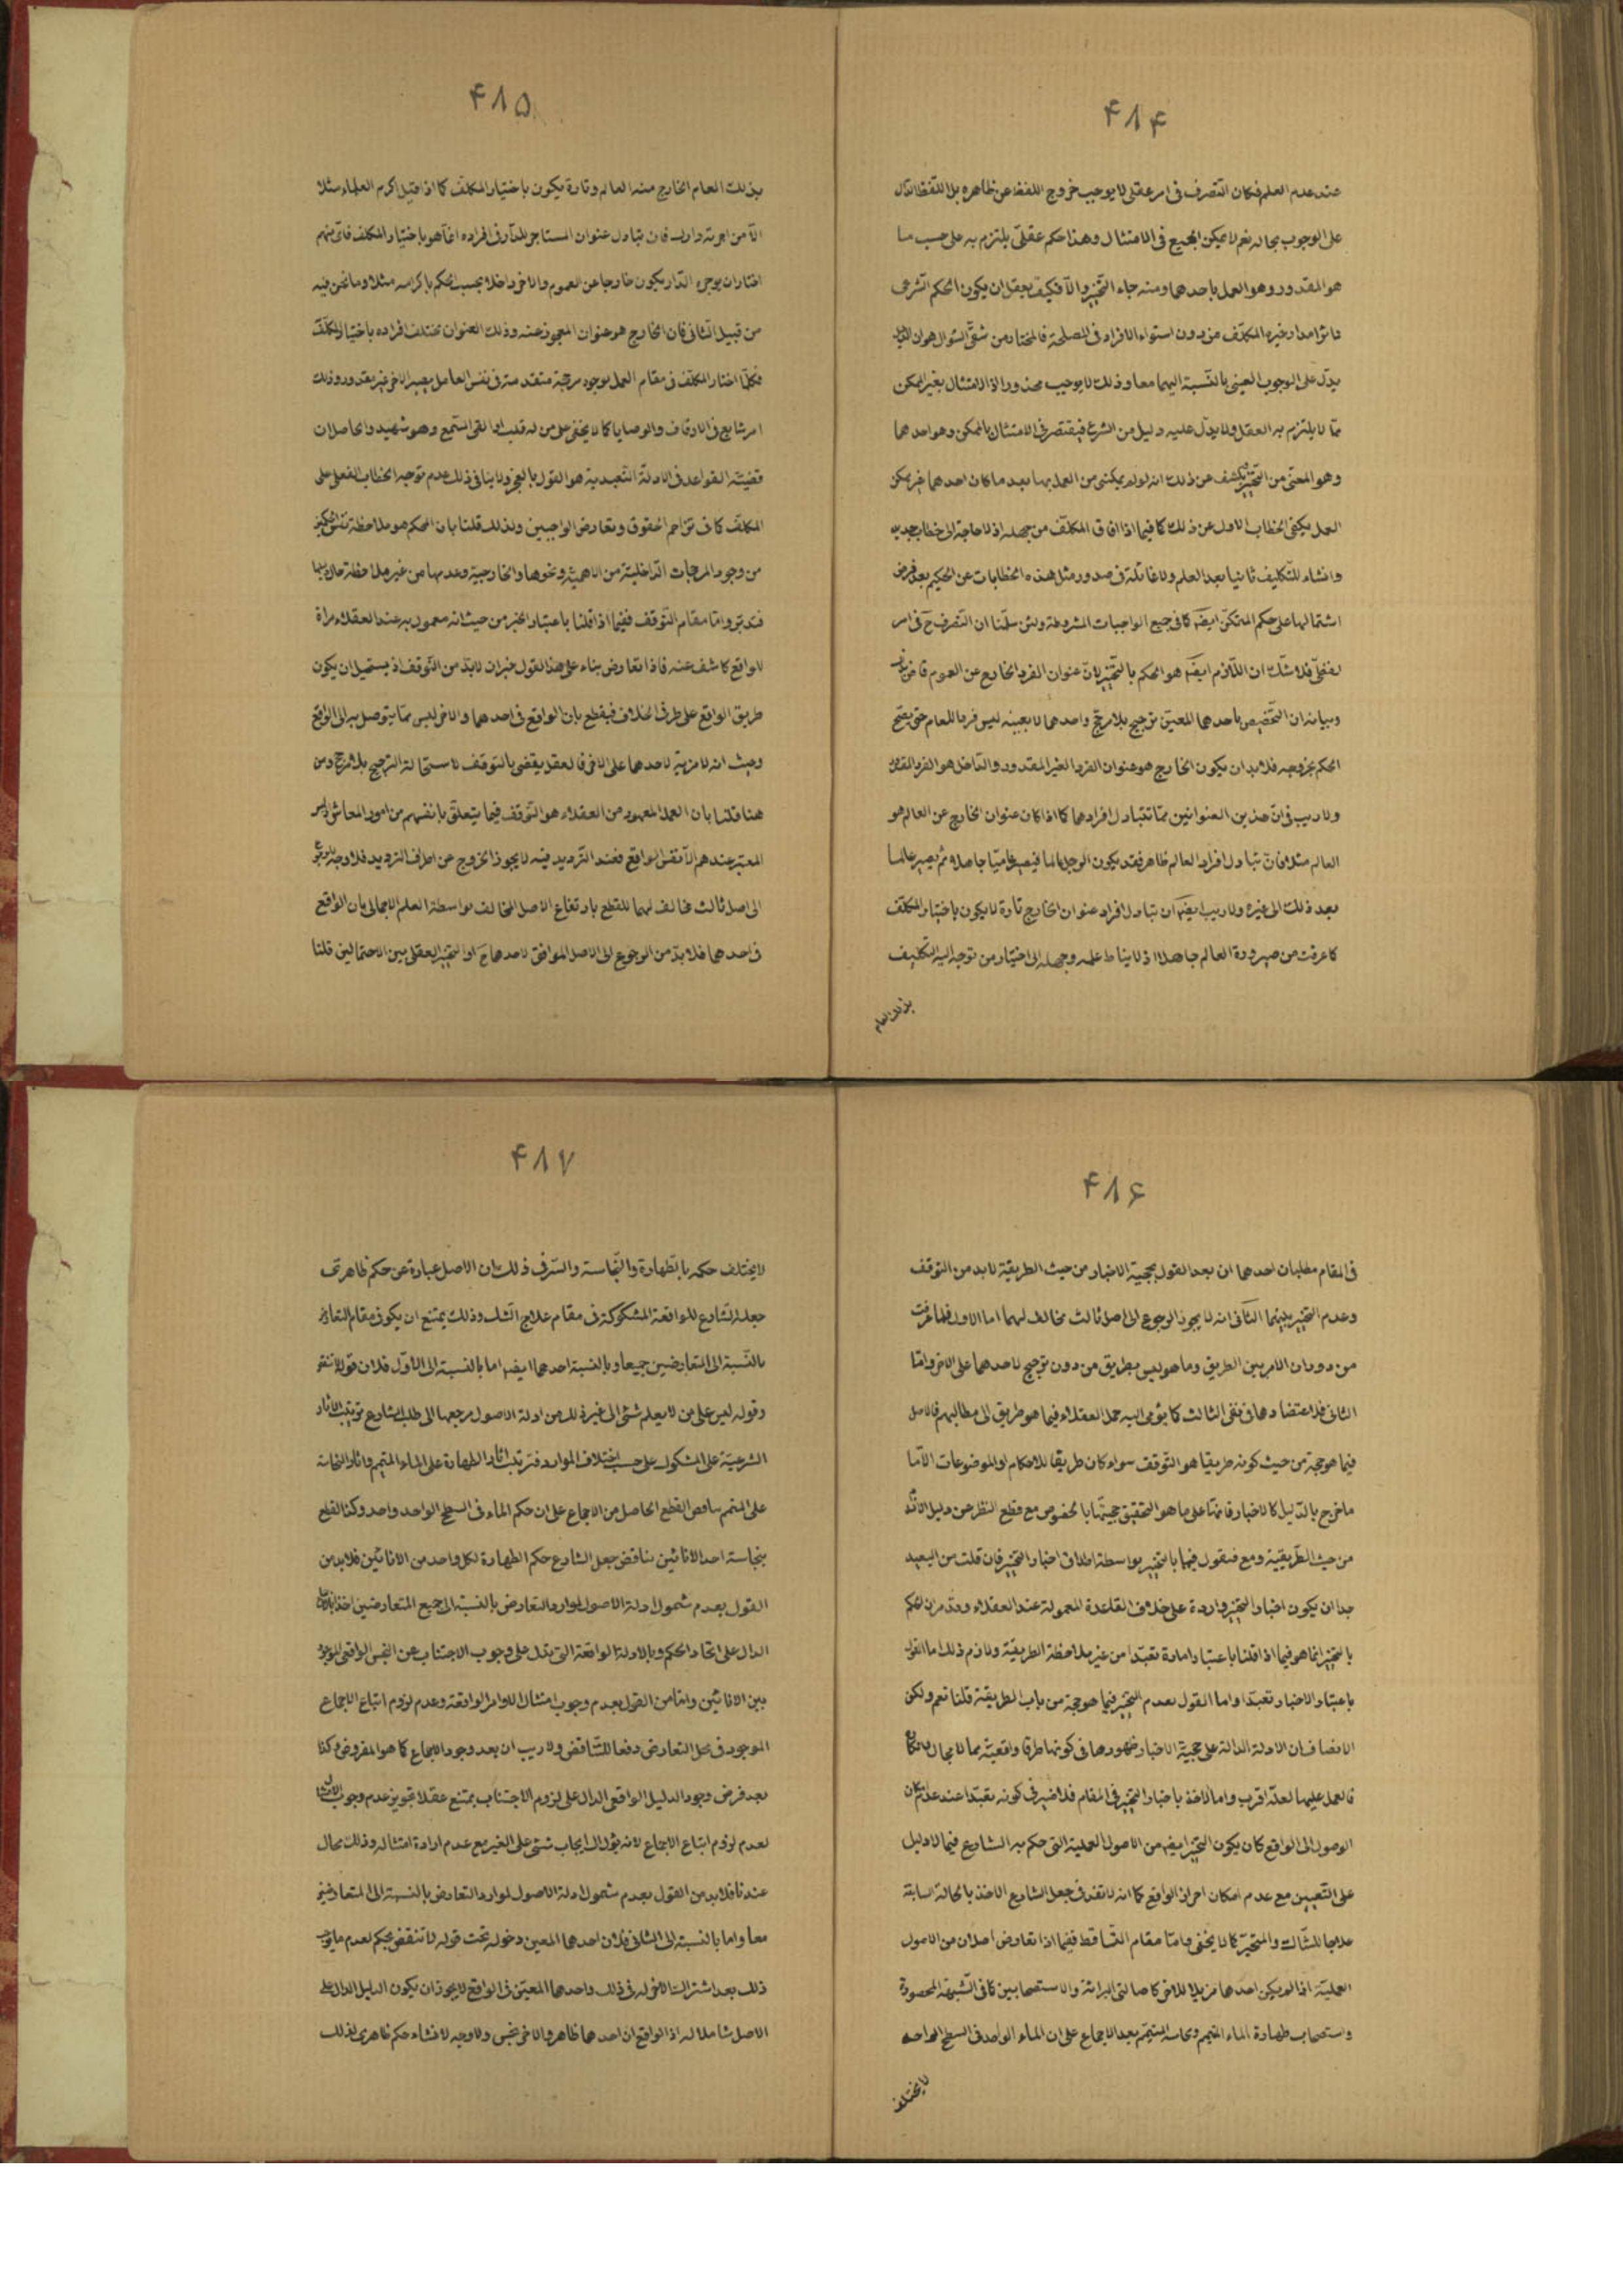 ۴۸۴
عند عدم العلم فكان التصرف فى امر عقلى لا يوجب خروج اللفظ عن ظاهره بل اللفظ الدال
على الوجوب بحاله نعم لا يمكن الجمع فى الامتثال وهذا حكم عقلى يلتزم به على حسب ما
هو المقدور وهو العمل باحدهما ومنه جاء التخيير والا فكيف يعقل ان يكون الحكم الشرعى
المكلف من دون استواء الافراد فى المصلحة فالمختار من شقى السؤال هو ان
يدل على الوجوب العينى بالنسبة اليهما معا وذلك لا يوجب محذورا اذ الامتثال بغير الممكن
مما لا يلتزم به العقل ولا يدل عليه دليل من الشرع فيقتصر فى الامتثال بالممكن وهو احدهما
وهو المعنى من التخيير ويكشف عن ذلك انه لو لم يمكن من العمل بها بعد ما كان احدهما غير ممكن
العمل يكفى الخطاب الاول عن ذلك كما فيما اذا افاق المكلف من جهله اذ لا حاجة الى خطاب جديد
وانشاء للتكليف ثانيا بعد العلم ولا غائلة فى صدور مثل هذه الخطابات عن الحكيم بعد فرض
اشتمالها على حكم المتمكن ايضا كما فى جميع الواجبات المشروطة ولئن سلمنا ان التصرف ح فى امر
لفظى فلا شك ان اللازم ايضا هو الحكم بالتخيير لان عنوان الفرد الخارج عن العموم
وبيانه ان التخصيص باحدهما المعين ترجيح بلا مرجح واحدهما لا بعينه ليس فردا للعام حتى يصح
الحكم بخروجه فلا بد ان يكون الخارج هو عنوان الفرد الغير المقدور والداخل هو الفرد المقدور
ولا ريب فى ان هذين العنوانين مما تتبادل افرادهما كما اذا كان عنوان الخارج عن العالم هو
العالم مثلا فان تبادل افراد العالم ظاهر فقد يكون الرجل عالما فيصير عاميا جاهلا ثم يصير عالما
بعد ذلك الى غيره ولا ريب ايضا ان تبادل افراد عنوان الخارج تارة لا يكون باختيار المكلف
كما عرفت من صيرورة العالم جاهلا اذ لا يناط علمه وجهله الى اختيار من توجه اليه التكليف
بذلك العام
۴۸۵
بذلك العام الخارج منه العالم وتارة يكون باختيار المكلف كما اذا قيل اكرم العلماء مثلا
الا من اجرته دارك فان تبادل عنوان المستاجر للدار فى افراده انما هو باختيار المكلف فاى منهم
اختار ان يوجره الدار يكون خارجا عن العموم والاخر داخلا بحسب الحكم باكرامه مثلا وما نحن فيه
من قبيل الثانى فان الخارج هو عنوان المعجوز عنه وذلك العنوان تختلف افراده باختيار المكلف
فكلما اختار المكلف فى مقام العمل لوجوه مرجحة منقدحة فى نفس العامل يصير الاخر غير مقدور وذلك
امر شايع فى الاوقاف والوصايا كما لا يخفى على من له قلب او القى السمع وهو شهيد والحاصل ان
قضيته القواعد فى الادلة التعبدية هو القول بالتخيير ولا ينافى ذلك عدم توجه الخطاب الفعلى على
المكلف كما فى تزاحم الحقوق وتعارض الواجبين ولذلك قلنا بان المحكم هو ملاحظة نفس الحكم
من وجود المرجحات الداخلية من الاهمية ونحوها والخارجية وعدمها من غير ملاحظة حال دليلهما
فتدبر واما مقام التوقف ففيما اذا قلنا باعتبار الخبر من حيث انه معمول به عند العقلاء مراة
للواقع كاشف عنه فاذا تعارض بناء على هذا القول خبران لا بد من التوقف اذ يستحيل ان يكون
طريق الواقع على طرفى الخلاف فيقطع بان الواقع فى احدهما والاخر ليس مما يتوصل به الى الواقع
وحيث انه لا مزية لاحدهما على الاخر فالعقل يقضى بالتوقف لاستحالة الترجيح بلا مرجح ومن
هنا قلنا بان العمل المعهود من العقلاء هو التوقف فيما يتعلق بانفسهم من امور المعاش وليس
المعتبر عندهم الا نفس الواقع فعند الترديد فيه لا يجوز الخروج عن اطراف الترديد فلا وجه للرجوع
الى اصل ثالث مخالف لهما للقطع بارتفاع الاصل المخالف بواسطة العلم الاجمالى بان الواقع
فى احدهما فلا بد من الرجوع الى الاصل الموافق لاحدهما ح او التخيير العقلى بين الاحتمالين قلنا
۴۸۶
فى المقام مطلبان احدهما ان بعد القول بحجية الاخبار من حيث الطريقية لا بد من التوقف
وعدم التخيير بينهما الثانى انه لا يجوز الرجوع الى اصل ثالث مخالف لهما اما الاول فلما عرفت
من دوران الامر بين الطريق وما هو ليس بطريق من دون ترجيح لاحدهما على الاخر واما
الثانى فلاعتضادهما فى نفى الثالث كما يؤمى اليه حمل العقلاء فيما هو طريق الى مطالبهم فالاصل
فيما هو حجة من حيث كونه طريقيا هو التوقف سواء كان طريقا للاحكام او الموضوعات الا ما
ما خرج بالدليل كالاخبار فانها على ما هو التحقيق حجيتها بالخصوص مع قطع النظر عن دليل الانسداد
من حيث الطريقية ومع فنقول فيها بالتخيير بواسطة اطلاق اخبار التخيير فان قلت من البعيد
جدا ان يكون اخبار التخيير واردة على خلاف القاعدة المعمولة عند العقلاء وقد مر ان الحكم
بالتخيير انما هو فيما اذا قلنا باعتبار امارة تعبدا من غير ملاحظة الطريقية ولازم ذلك اما القول
باعتبار الاخبار تعبدا واما القول بعدم التخيير فيما هو حجة من باب الطريقية قلنا نعم ولكن
الانصاف ان الادلة الدالة على حجية الاخبار ظهورها فى كونها طرقا واقعية مما لا مجال لانكاره
فالعمل عليها لعله اقرب واما الاخذ باخبار التخيير فى المقام فلا ضير فى كونه تعبدا عند عدم امكان
الوصول الى الواقع كان يكون التخيير ايضا من الاصول العملية التى حكم به الشارع فيما لا دليل
على التعيين مع عدم امكان احراز الواقع كما انه لا نقد فى جعل الشارع الاخذ بالحالة السابقة
علاجا للشاك والمتحير كما لا يخفى واما مقام التساقط ففيما اذا تعارض اصلان من الاصول
العملية اذا لم يكن احدهما مزيلا للاخر كاصالتى البرائة والاستصحابين كما فى الشبهة المحصورة
واستصحاب طهارة الماء المتمم ونجاسة المتمم بعد الاجماع على ان الماء الواحد فى السطح الواحد
لا يختلف
۴۸۷
لا يختلف حكمه بالطهارة والنجاسة والسر فى ذلك ان الاصل عبارة عن حكم ظاهرى
جعله الشارع للواقعة المشكوكة فى مقام علاج الشك وذلك يمتنع ان يكون فى مقام التعارض
بالنسبة الى المتعارضين جميعا وبالنسبة احدهما ايضا اما بالنسبة الى الاول فلان قوله لا تنقض
وقوله ليس على من لا يعلم شئ الى غير ذلك من ادلة الاصول مرجعها الى طلب الشارع ترتيب الاثار
الشرعية على المشكوك على حسب اختلاف الموارد فترتيب اثار الطهارة على الماء المتمم واثار النجاسة
على المتمم يناقض القطع الحاصل من الاجماع على ان حكم الماء فى السطح الواحد واحد وكذا القطع
بنجاسة احد الانائين يناقض جعل الشارع حكم الطهارة لكل واحد من الانائين فلا بد من
القول بعدم شمول ادلة الاصول لموارد التعارض بالنسبة الى جميع المتعارضين اخذا بالاجماع
الدال على اتحاد الحكم وبالادلة الواقعة التى تدل على وجوب الاجتناب عن النجس الواقعى الموجود
بين الانائين واما من القول بعدم وجوب امتثال الاوامر الواقعة وعدم لزوم اتباع الاجماع
الموجود فى محل التعارض دفعا للتناقض ولا ريب ان بعد وجود الاجماع كما هو المفروض وكذا
بعد فرض وجود الدليل الواقعى الدال على لزوم الاجتناب يمتنع عقلا تجويز عدم وجوب الامتثال
لعدم لزوم اتباع الاجماع لانه يؤل الى ايجاب شئ على الغير مع عدم ارادة امتثاله وذلك محال
عندنا فلا بد من القول بعدم شمول ادلة الاصول لموارد التعارض بالنسبة الى المتعارضين
معا واما بالنسبة الى الثانى فلان احدهما المعين دخوله تحت قوله لا تنقض تحكم لعدم ما يوجب
ذلك بعد اشتراك الاخر له فى ذلك واحدهما المعين فى الواقع لا يجوز ان يكون الدليل الدال على
الاصل شاملا له اذ الواقع ان احدهما طاهر والاخر نجس ولا وجه لانشاء حكم ظاهرى لذلك